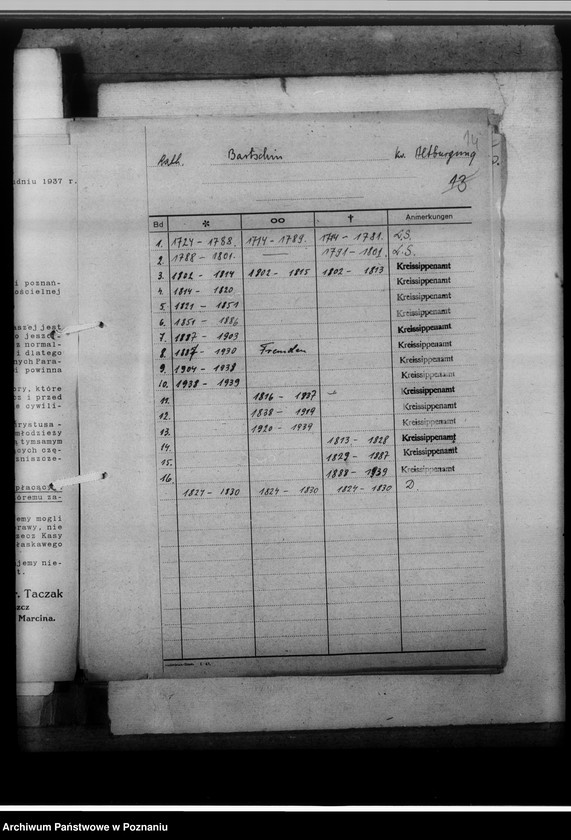 14
Kath. Bartschin Kr. Altburgund
13
udniu 1937 r.
Bd * ∞ † Anmerkungen
1. 1724 - 1788. 1714 - 1789. 1714 - 1781. L.S.
2. 1788 - 1801. — 1791 - 1801. L.S.
3. 1802 - 1814 1802 - 1815 1802 - 1813 Kreissippenamt
4. 1814 - 1820 Kreissippenamt
5. 1821 - 1851 Kreissippenamt
6. 1851 - 1886 Kreissippenamt
7. 1887 - 1903 Kreissippenamt
8. 1887 - 1930 Fremden Kreissippenamt
9. 1904 - 1938 Kreissippenamt
10. 1938 - 1939 Kreissippenamt
11. 1816 - 1837 Kreissippenamt
12. 1838 - 1919 Kreissippenamt
13. 1920 - 1939 Kreissippenamt
14. 1813 - 1828 Kreissippenamt
15. 1829 - 1887 Kreissippenamt
16. 1888 - 1939 Kreissippenamt
1824 - 1830 1824 - 1830 1824 - 1830 D.
i poznań-
ościelnej
aszej jest
o jeszcze
z normal-
i dlatego
nych Para-
i powinna
ry, które
z i przed
e cywili-
rystusa -
młodzieży
ą tymsamym
ących czę-
zniszcze-
płacąc
óremu za-
emy mogli
rawy, nie
rzecz Kasy
łaskawego
ujemy nie-
t.
r. Taczak
szcz
Marcina.
Archiwum Państwowe w Poznaniu